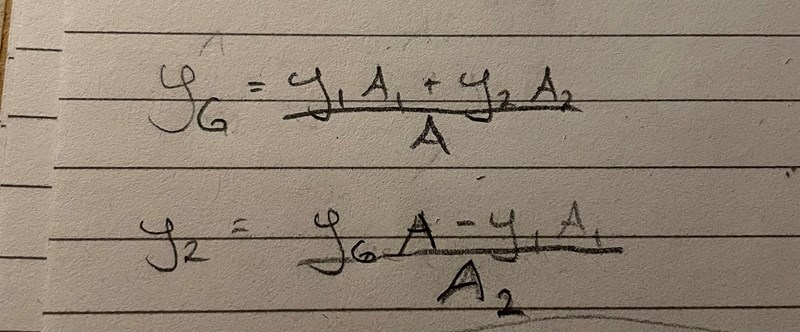 y_G = (y_1 A_1 + y_2 A_2) / A
y_2 = (y_G A - y_1 A_1) / A_2